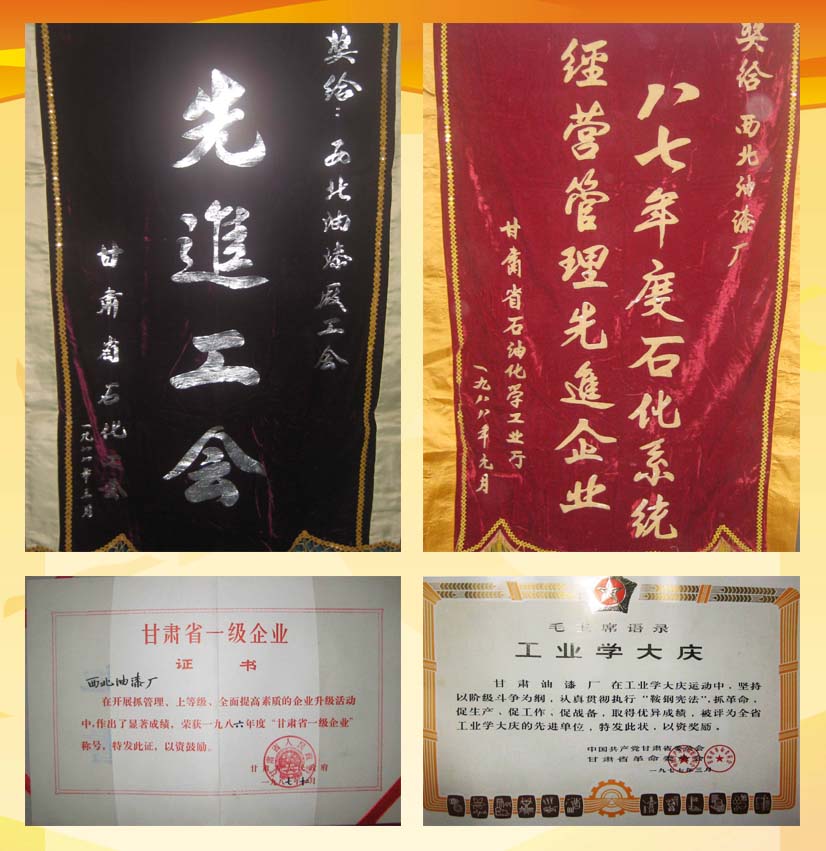 奖给：西北油漆厰工会
先進工会
甘肃省石化
三月
奖给西北油漆厂
八七年度石化系统
經营管理先進企业
甘肃省石油化学工业厅
一九八八年元月
甘肃省一级企业
证书
西北油漆厂
在开展抓管理、上等级、全面提高素质的企业升级活动
中,作出了显著成绩，荣获一九八六年度“甘肃省一级企业”
称号，特发此证，以资鼓励。
甘肃省人民政府
一九八七年十月
毛主席语录
工业学大庆
甘肃油漆厂在工业学大庆运动中，坚持
以阶级斗争为纲，认真贯彻执行“鞍钢宪法”,抓革命，
促生产、促工作、促战备，取得优异成绩，被评为全省
工业学大庆的先进单位，特发此状，以资奖励。
中国共产党甘肃省委员会
甘肃省革命委员会
一九七七年三月